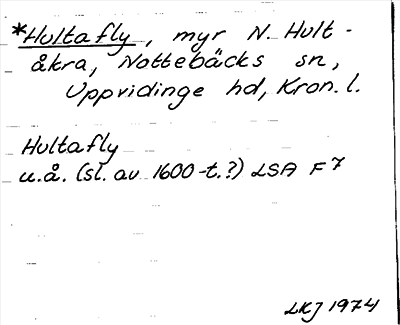 *Hultafly, myr N. Hult-
åkra, Nottebäcks sn,
Uppvidinge hd, Kron. l.
Hultafly
u.å. (sl. av 1600-t.?) LSA F 7
LKJ 1974